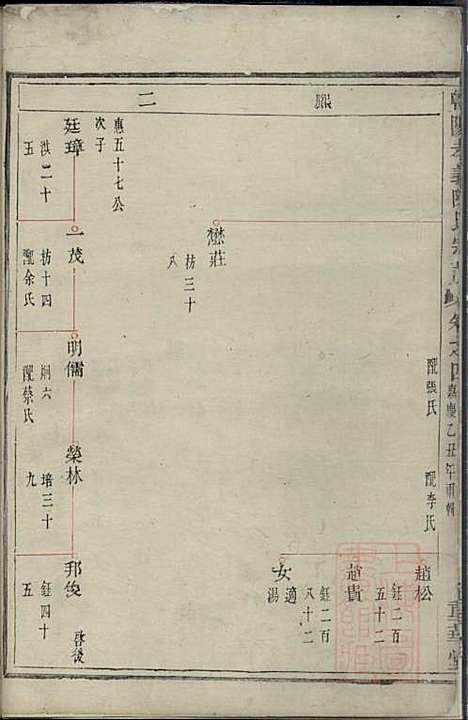 朝陽孝義陳氏宗譜 卷之四 嘉慶乙丑年重輯
二
配張氏
配李氏
趙松
鈺二百
五十二
趙貴
鈺二百
八十二
女
適
湯
懋莊
枋三十
八
惠五十七公
次子
廷璋
洪二十
五
一茂
枋十四
配余氏
明儒
炯六
配蔡氏
榮林
培三十
九
邦俊
鈺四十
五
啓後